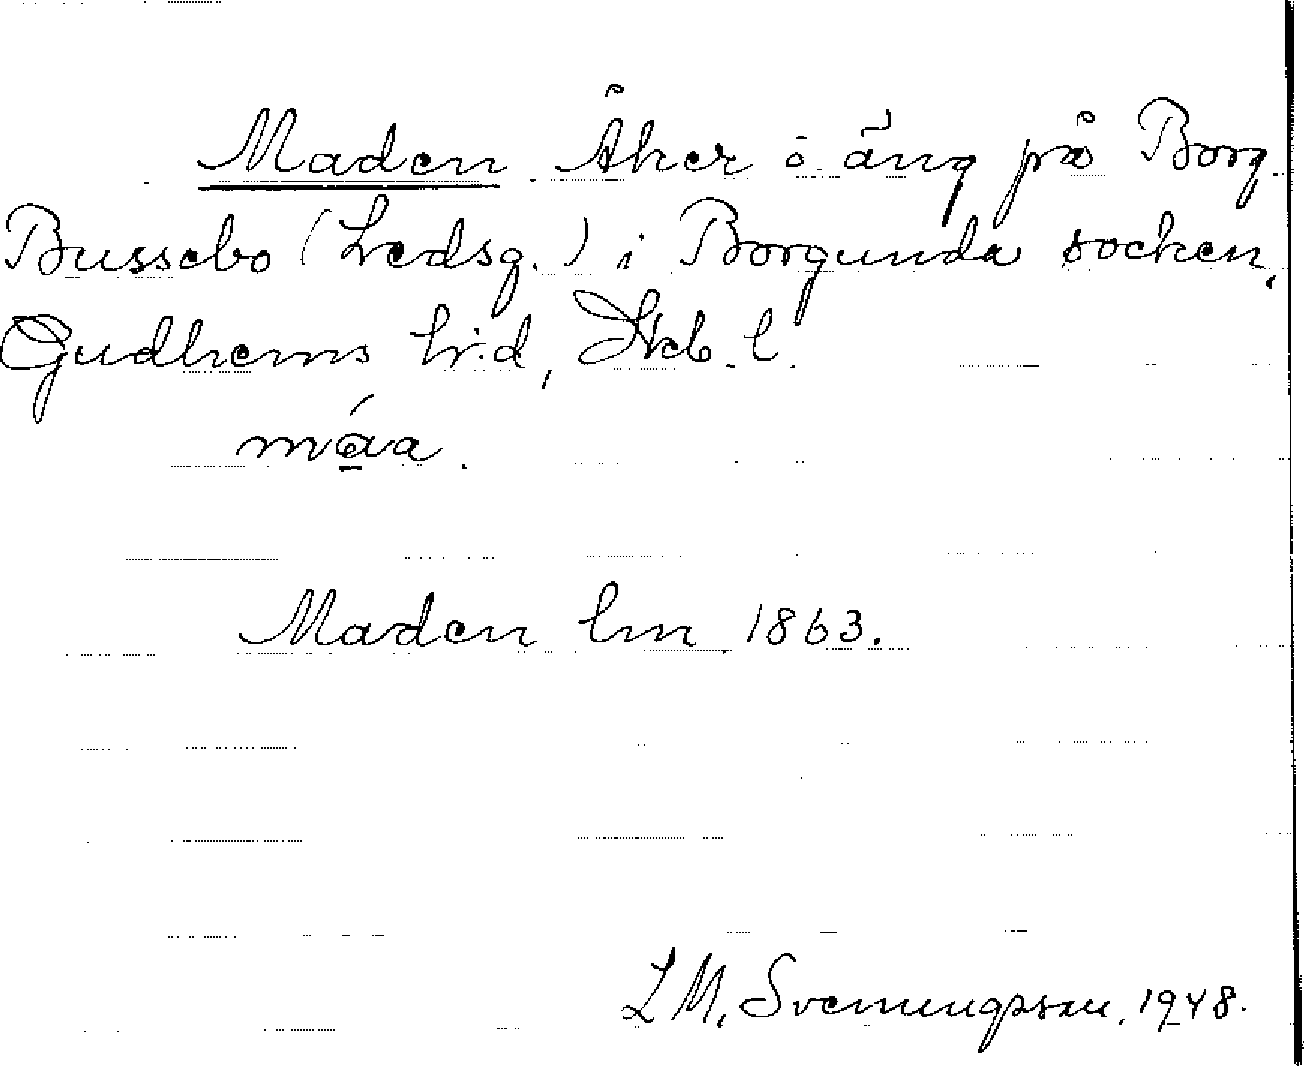 Maden Åker ö äng på Borg
Bussebo (Ledsg.) i Borgunda socken,
Gudhems h:d, Skb. l.
máa.
Maden lm 1863.
L M, Svenungsson, 1948.